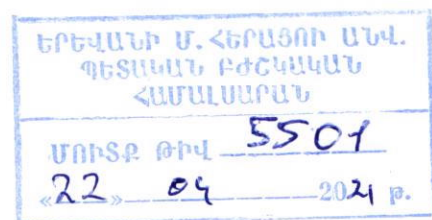 ԵՐԵՎԱՆԻ Մ. ՀԵՐԱՑՈՒ ԱՆՎ.
ՊԵՏԱԿԱՆ ԲԺՇԿԱԿԱՆ
ՀԱՄԱԼՍԱՐԱՆ
ՄՈՒՏՔ ԹԻՎ 5501
«22» 04 2021 թ.